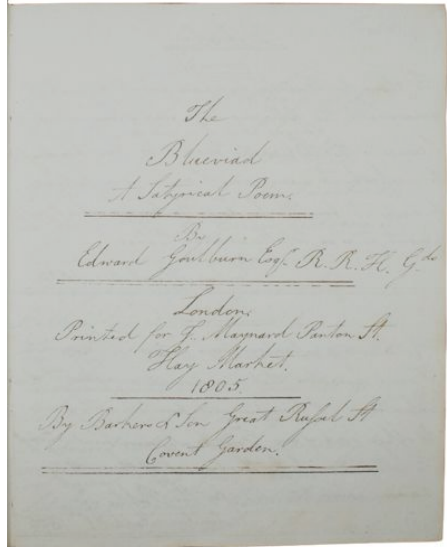 The
Blueviad
A Satyrical Poem.
By
Edward Goulburn Esqr. R. R. H. Gds
London.
Printed for J. Maynard Panton St.
Hay Market.
1805.
By Barkers & Son Great Russel St
Covent Garden.